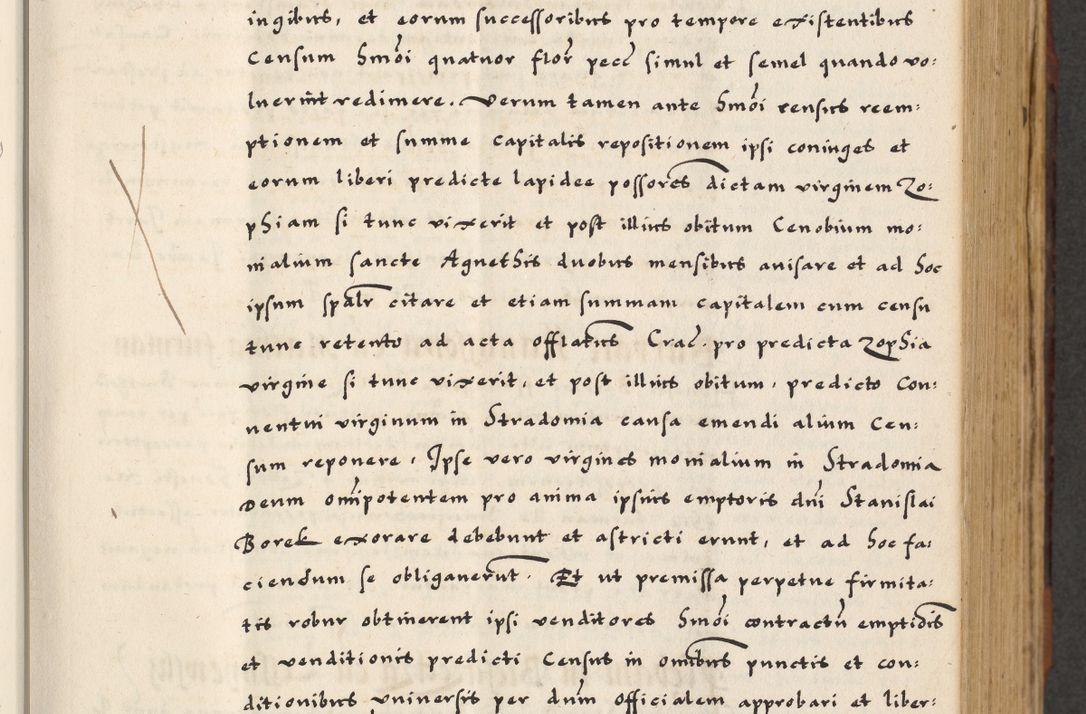 ingibus, et eorum successoribus pro tempore existentibus
Censum hmõi quatuor flor̃ pecc̃ simul et semel quando vo:
luerint redimere. Verum tamen ante hmõi census reem:
ptionem et summe capitalis repositionem ipsi coniuges et
eorum liberi predicte lapidee possor̃es dictam virginem Zo:
phiam si tunc vixerit et post illius obitum Cenobium mo:
nialium sancte Agnethis duobus mensibus avisare et ad hoc
ipsum spalr̃ citare et etiam summam capitalem cum censu
tunc retento ad acta offlatus̃ Crac̃. pro predicta Zophia
virgine si tunc vixerit, et post illius obitum, predicto Con:
ventui virginum in Stradomia causa emendi alium Cen:
sum reponere, Ipse vero virgines monialium in Stradomia
Deum om̃ipotentem pro anima ipsius emptoris dñi Stanislai
Borek exorare debebunt et astricti erunt, et ad hoc fa:
ciendum se obligaverũt. Et ut premissa perpetue firmita:
tis robur obtinerent ipsi venditores hmõi contractũ emptiõis
et venditionis predicti Census in om̃ibus punctis et con:
ditionibus universis per dñm officialem approbari et liber: